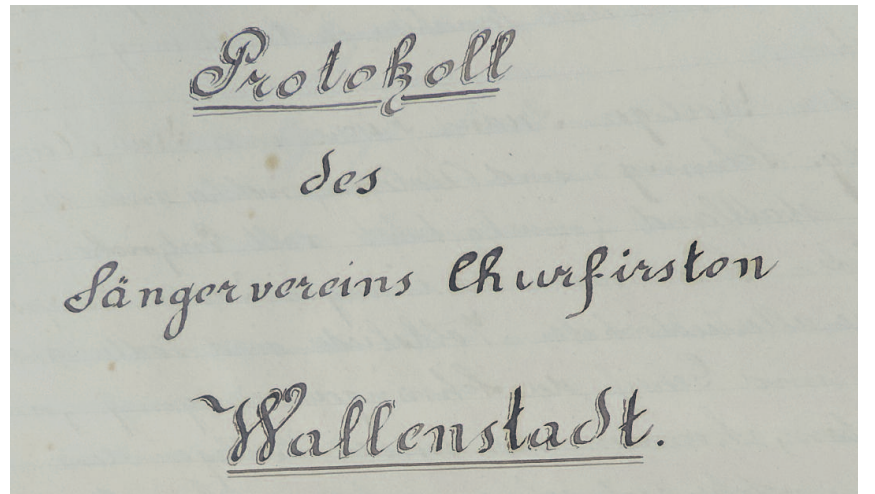 Protokoll
des
Sängervereins Churfirsten
Wallenstadt.